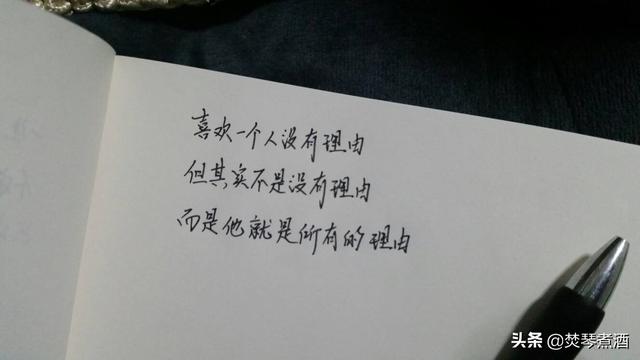 喜欢一个人没有理由
但其实不是没有理由
而是他就是所有的理由
头条@焚琴煮酒